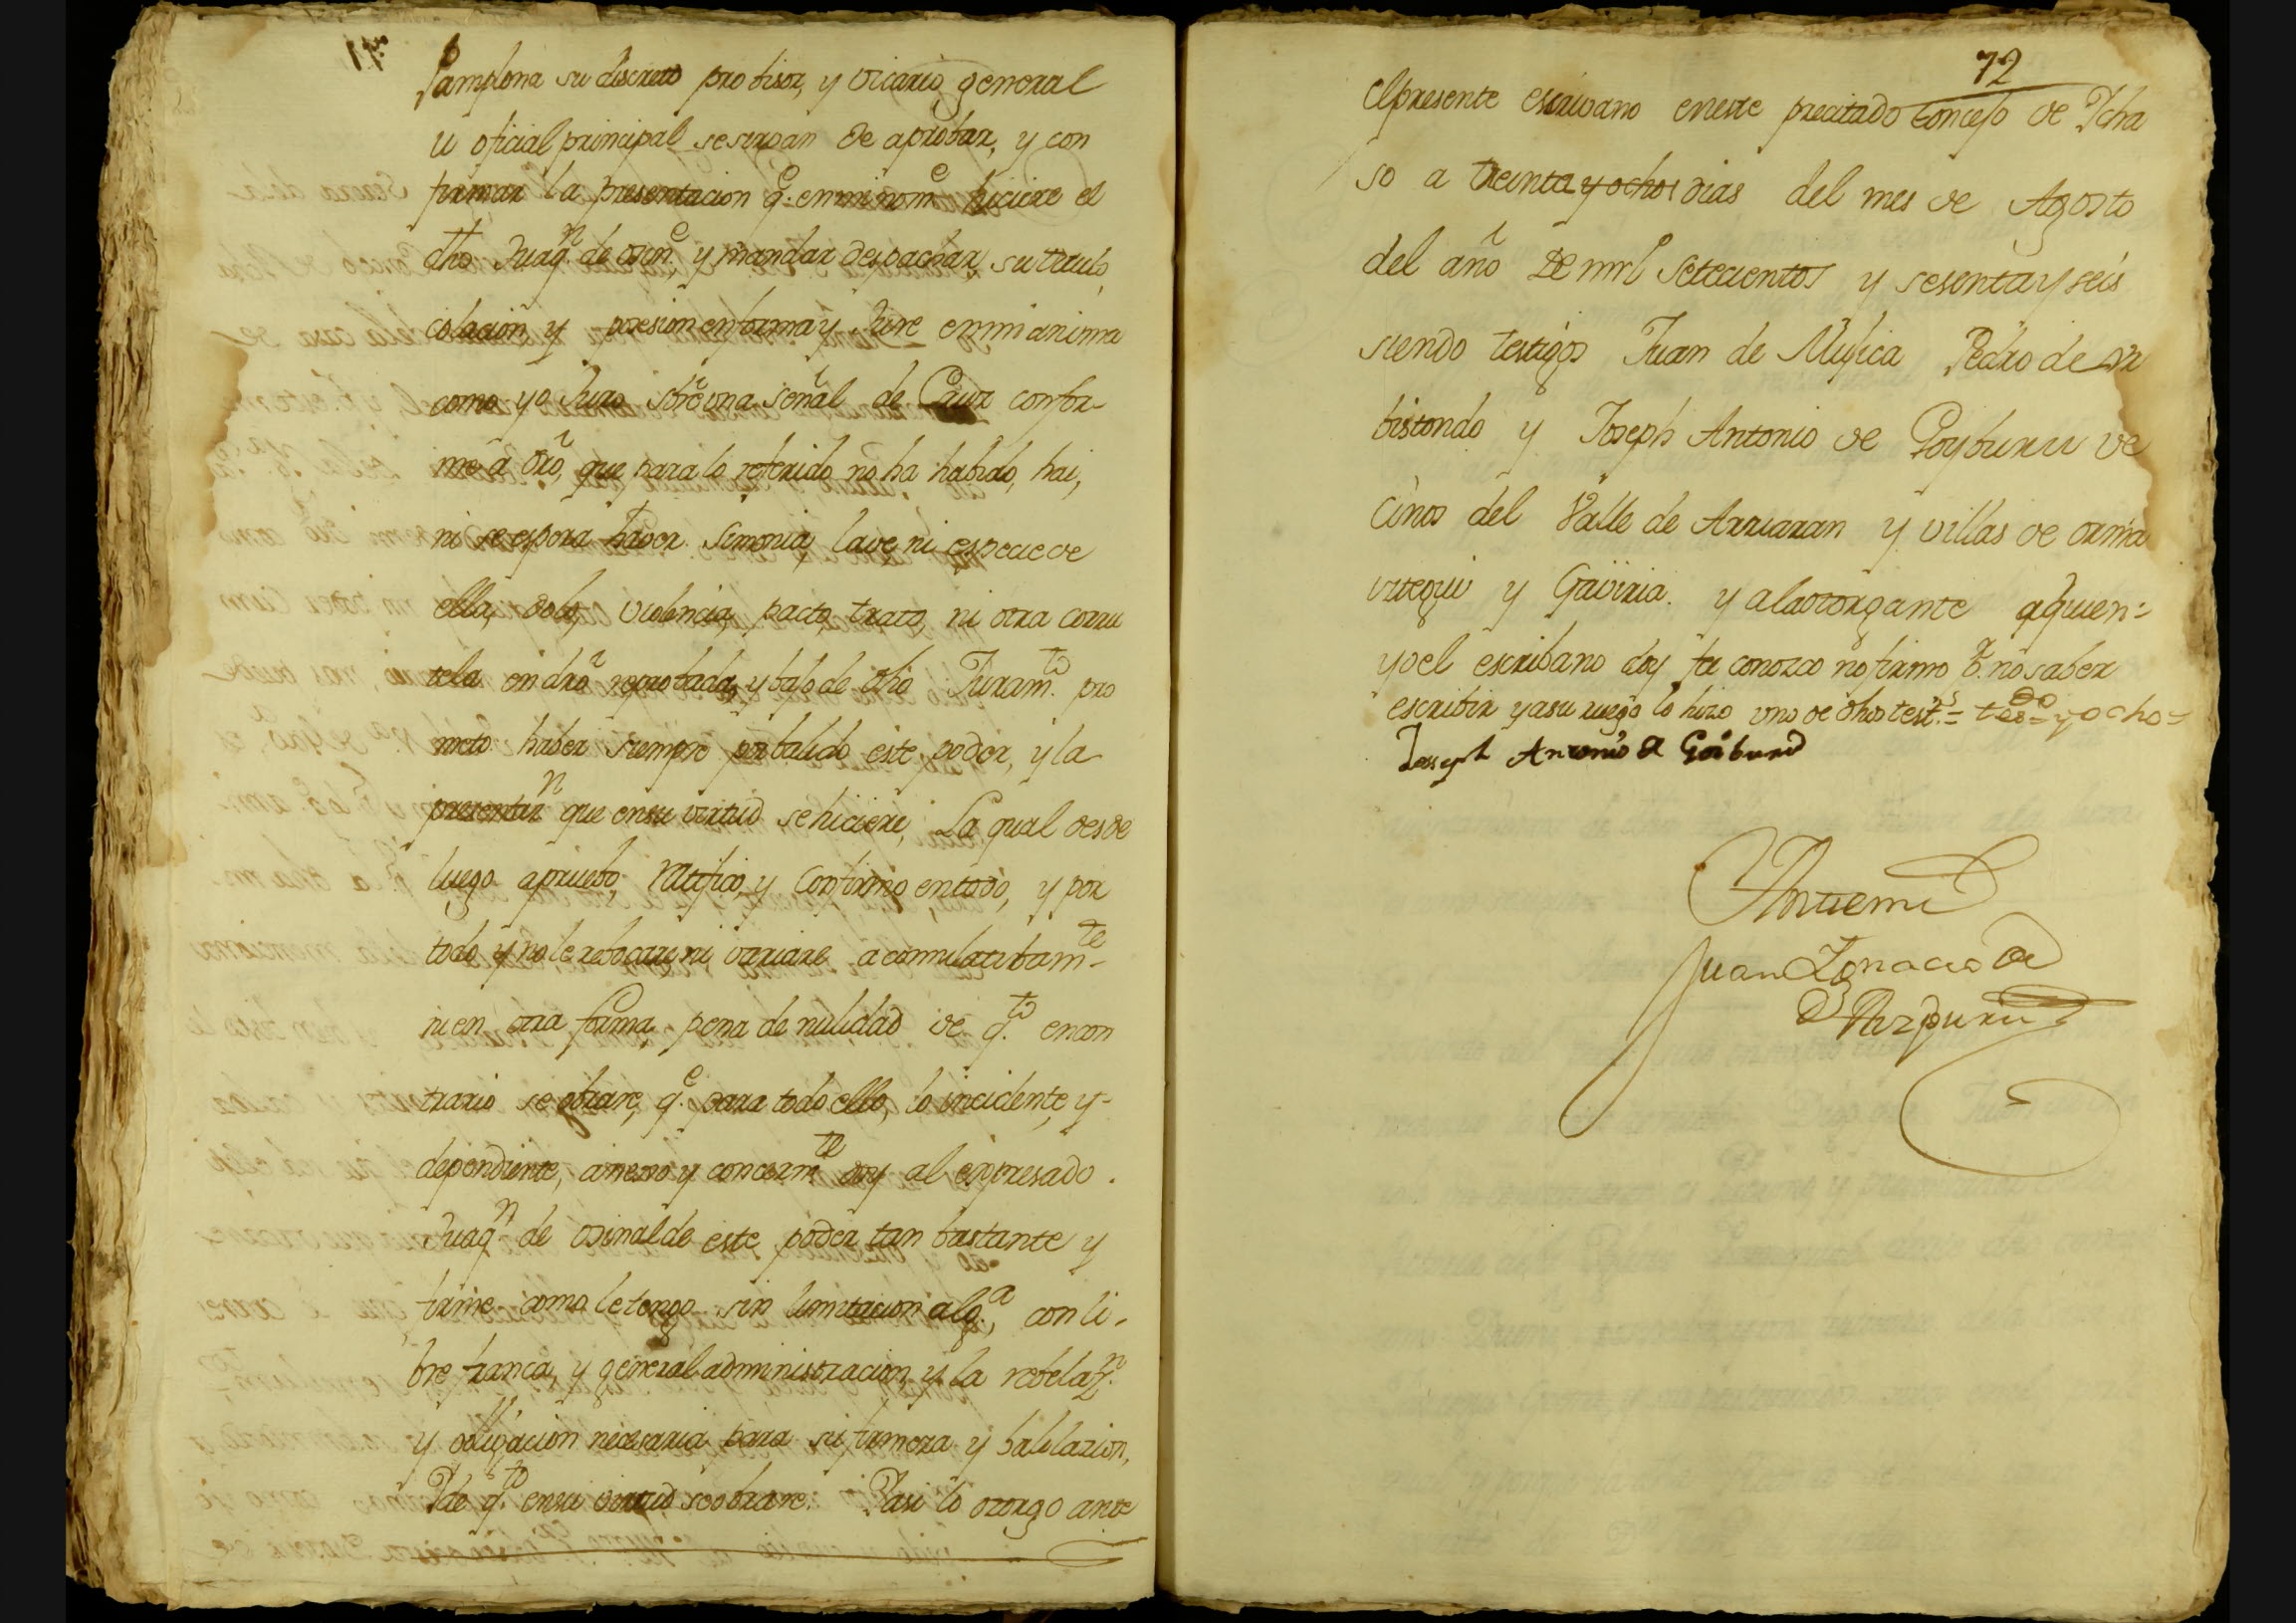 71
Pamplona su discreto probisor, y vicario general
u oficial principal se sirvan de aprobar, y con
firmar la presentacion q.e en mi nom.e hiciere el
dho Juaq.n de Osin.e y mandar despachar, su titulo,
colacion y posesion en forma y Jure en mi anima
como yo Juro sobre una señal de Cruz confor-
me a dro, que para lo referido no ha habido, hai,
ni se espera haver simonia, lave ni especie de
ella, dolo, violencia, pacto, trato, ni otra corru
tela en dro reprobada, y bajo de dho Juram.to pro
meto haber siempre por balido este poder, y la
presentaz.n que en su virtud se hiciere, La qual desde
luego apruebo, ratifico, y Confirmo en todo, y por
todo y no le rebocare, ni variare acomulatibam.te
ni en otra forma, pena de nulidad de q.to encon
trario se obrare, q.e para todo ello, lo incidente, y-
dependiente, annexo y concern.te doy al expresado
Juaq.n de Osinalde este poder tan bastante y
firme como le tengo sin limitacion alg.a, con li-
bre franca, y general administracion y la rebelaz.n
y obligacion necesaria para su firmeza y balidazion,
Y de q.to en su virtud se obrare. Y asi lo otorgo ante
72
el presente escrivano en este precitado Concejo de Ycha
so a treinta y ochos dias del mes de Agosto
del año de mil setecientos y sesenta y seis
siendo testigos Juan de Mujica Pedro de Ur
bistondo y Joseph Antonio de Goyburu ve
cinos del Valle de Arriaran y villas de orma
iztegui y Gaviria. y a la otorgante aquien=
yo el escribano doy fe conozco no firmo P. no saber
escribir y a su ruego lo hizo uno de dhos test.s = t.do = y ocho =
Joseph Antonio de Goiburu
Ante mi
Juan Ignacio de
Aizpuru